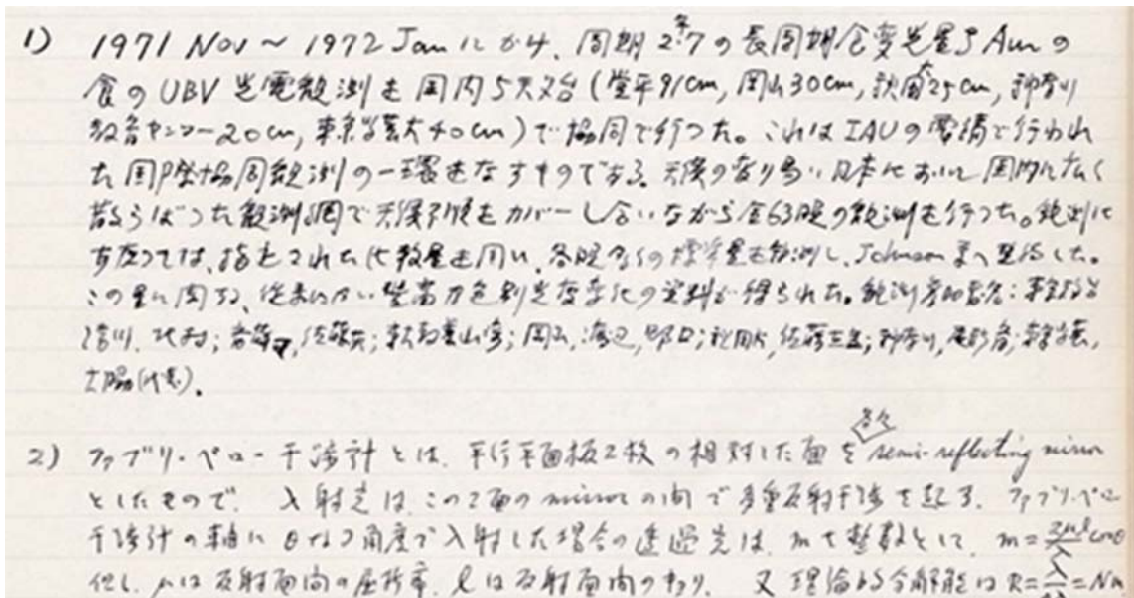 1) 1971 Nov ~ 1972 Jan にかけ、周期 2.7年の長周期食変光星 ζ Aur の
食の UBV 光電観測を国内5天文台 (堂平91cm, 岡山30cm, 秋田大25cm, 神奈川
教育センター20cm, 東京学芸大40cm) で協同で行つた。これは IAU の要請で行われ
た国際協同観測の一環をなすものである。天候の変り易い日本において国内に広く
散らばつた観測網で天候不順をカバーし合いながら全63晩の観測を行つた。観測に
当つては、指定された比較星を用い、各晩多くの標準星を観測し、Johnson 系へ した。
この星に関する、従来にない 高 色別光度変化の資料が得られた。観測参加者名:
清川, 佐藤英; 岡山, 渡辺, 野口; 秋田大, 佐藤 ; 神奈川,
大脇(代表).
2) ファブリ・ペロー干渉計とは、平行平面板2枚の相対した面を各々 semi-reflecting mirror
としたもので、入射光はこの2面の mirror の間で多重反射干渉を起す. ファブリ・ペロー
干渉計の軸に θ なる角度で入射した場合の透過光は、m を整数として、m = 2μl cosθ / λ
但し、μは反射面間の屈折率、l は反射面間のキョリ. 又 理論的分解能は R = λ = Nm